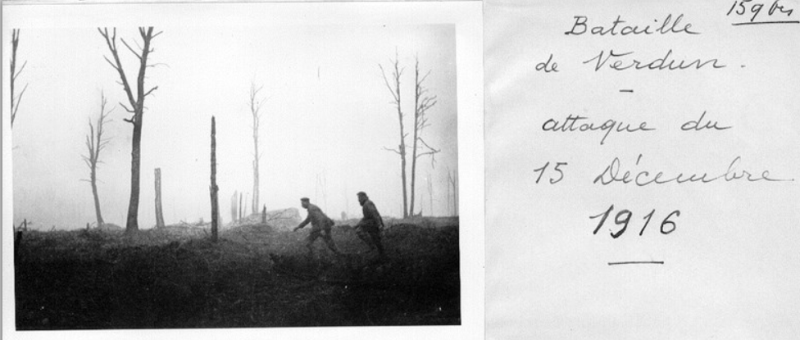 159 bis
Bataille
de Verdun.
-
attaque du
15 Décembre
1916